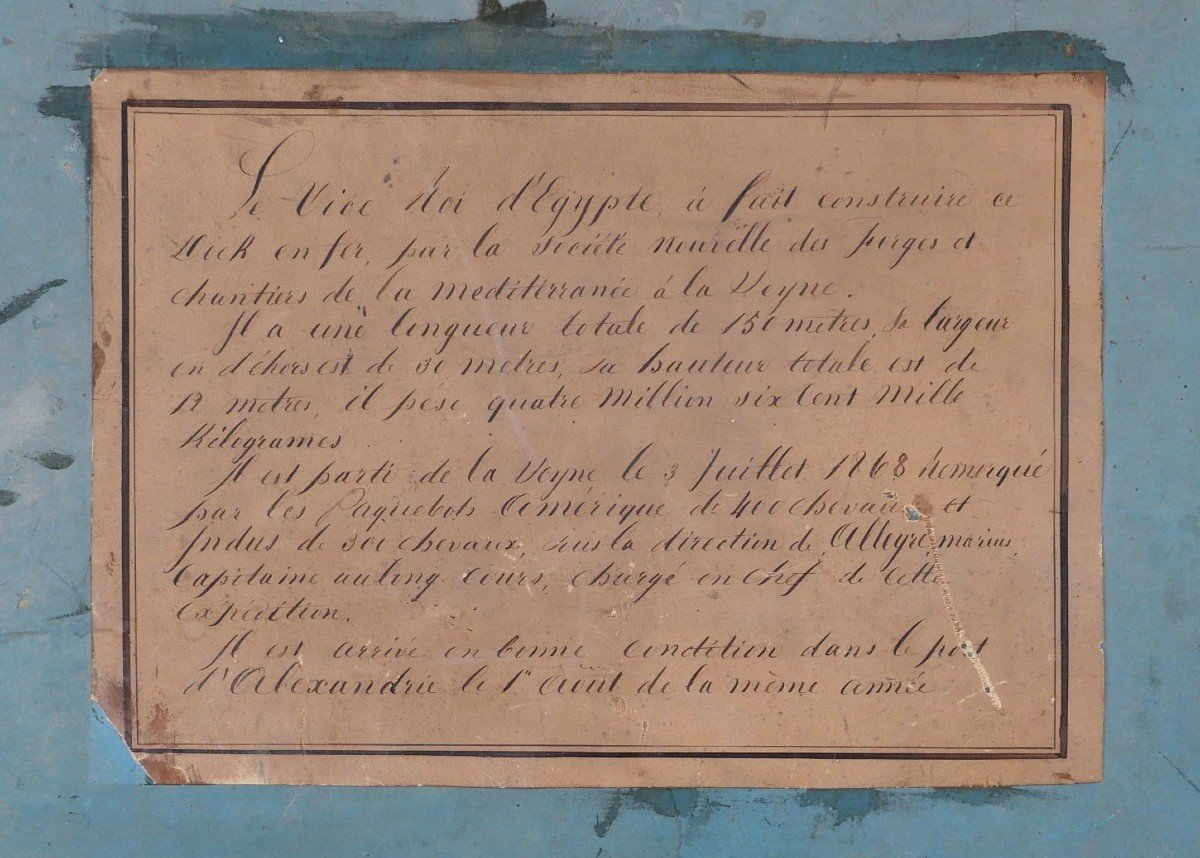 Le Vice Roi d'Egÿpte, à fait construire ce
Dock en fer, par la société nouvëlle des Forges et
chantiers de la mediterranée à la Seyne.
Il a une longueur totale de 150 mètres, sa largeur
en déhors est de 30 metres, sa hauteur totale est de
12 metres, il pèse quatre Million six Cent Mille
Kilogrames
Il est parti de la Seyne le 3 Juillet 1868 Remorqué
par les Paquebots Amérique de 400 chevaux et
Indus de 300 chevaux, sous la direction de Allegre, marius,
Capitaine au long Cours, chargé en chef de cette
expédition.
Il est arrivé en bonne condition dans le port
d'Alexandrie le 1er Août de la même année